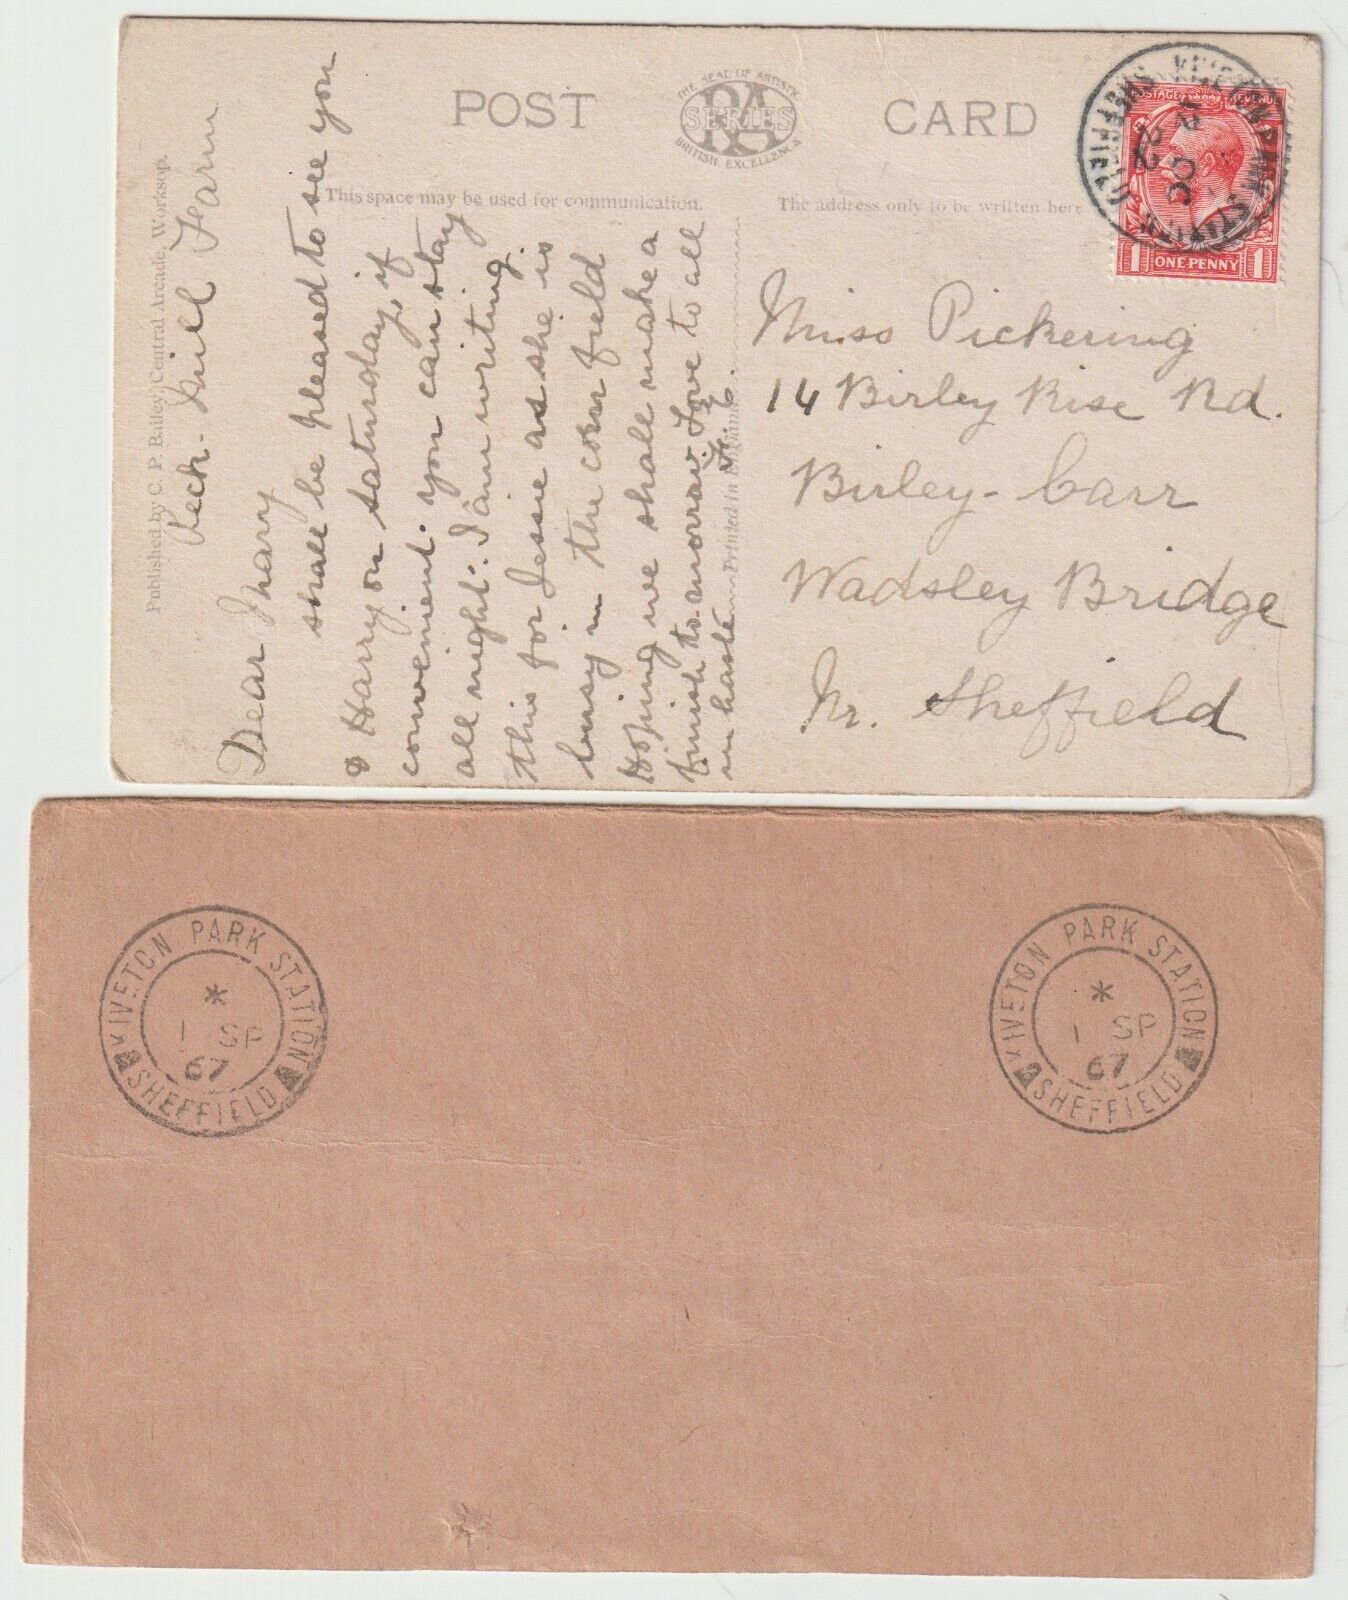 POST CARD
THE SEAL OF ARTISTIC
RA
SERIES
BRITISH EXCELLENCE
This space may be used for communication.
The address only to be written here
Published by C. P. Bailey, Central Arcade, Worksop.
Printed in England
Peck. Mill Farm
Dear Mary
shall be pleased to see you
& Harry on saturday, if
convenient. you can stay
all night. I am writing
this for Jessie as she is
busy in the corn field
Hoping we shall make a
finish to-morrow. Love to all
in haste
KIVETON PARK STATION
SHEFFIELD
22
POSTAGE REVENUE
1 ONE PENNY 1
Miss Pickering
14 Birley Rise Rd.
Birley-Carr
Wadsley Bridge
Nr. Sheffield
KIVETON PARK STATION
*
1 SP
67
SHEFFIELD
KIVETON PARK STATION
*
1 SP
67
SHEFFIELD